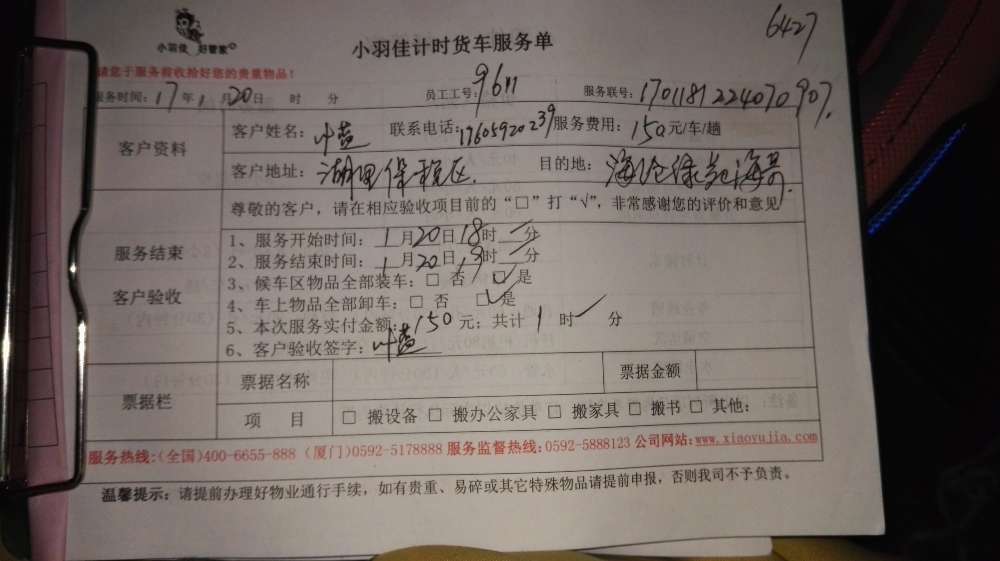 6427
小羽佳 好管家
小羽佳计时货车服务单
请您于服务前收拾好您的贵重物品!
服务时间: 17年1月20日 时 分 员工工号: 9611 服务联号: 170118122407 0907
客户资料
客户姓名: 叶蓝 联系电话: 17605920239 服务费用: 150元/车/趟
客户地址: 湖里保税区 目的地: 海沧绿苑海哥
尊敬的客户，请在相应验收项目前的“□”打“√”，非常感谢您的评价和意见
服务结束
客户验收
1、服务开始时间: 1月20日18时 分
2、服务结束时间: 1月20日19时 分
3、候车区物品全部装车: □ 否 ☑是
4、车上物品全部卸车: □ 否 ☑是
5、本次服务实付金额: 150元; 共计 1 时 分
6、客户验收签字: 叶蓝
票据栏
票据名称 票据金额
项 目 □ 搬设备 □ 搬办公家具 □ 搬家具 □ 搬书 □ 其他:
服务热线:(全国)400-6655-888 (厦门)0592-5178888 服务监督热线:0592-5888123 公司网站:www.xiaoyujia.com
温馨提示: 请提前办理好物业通行手续，如有贵重、易碎或其它特殊物品请提前申报，否则我司不予负责。